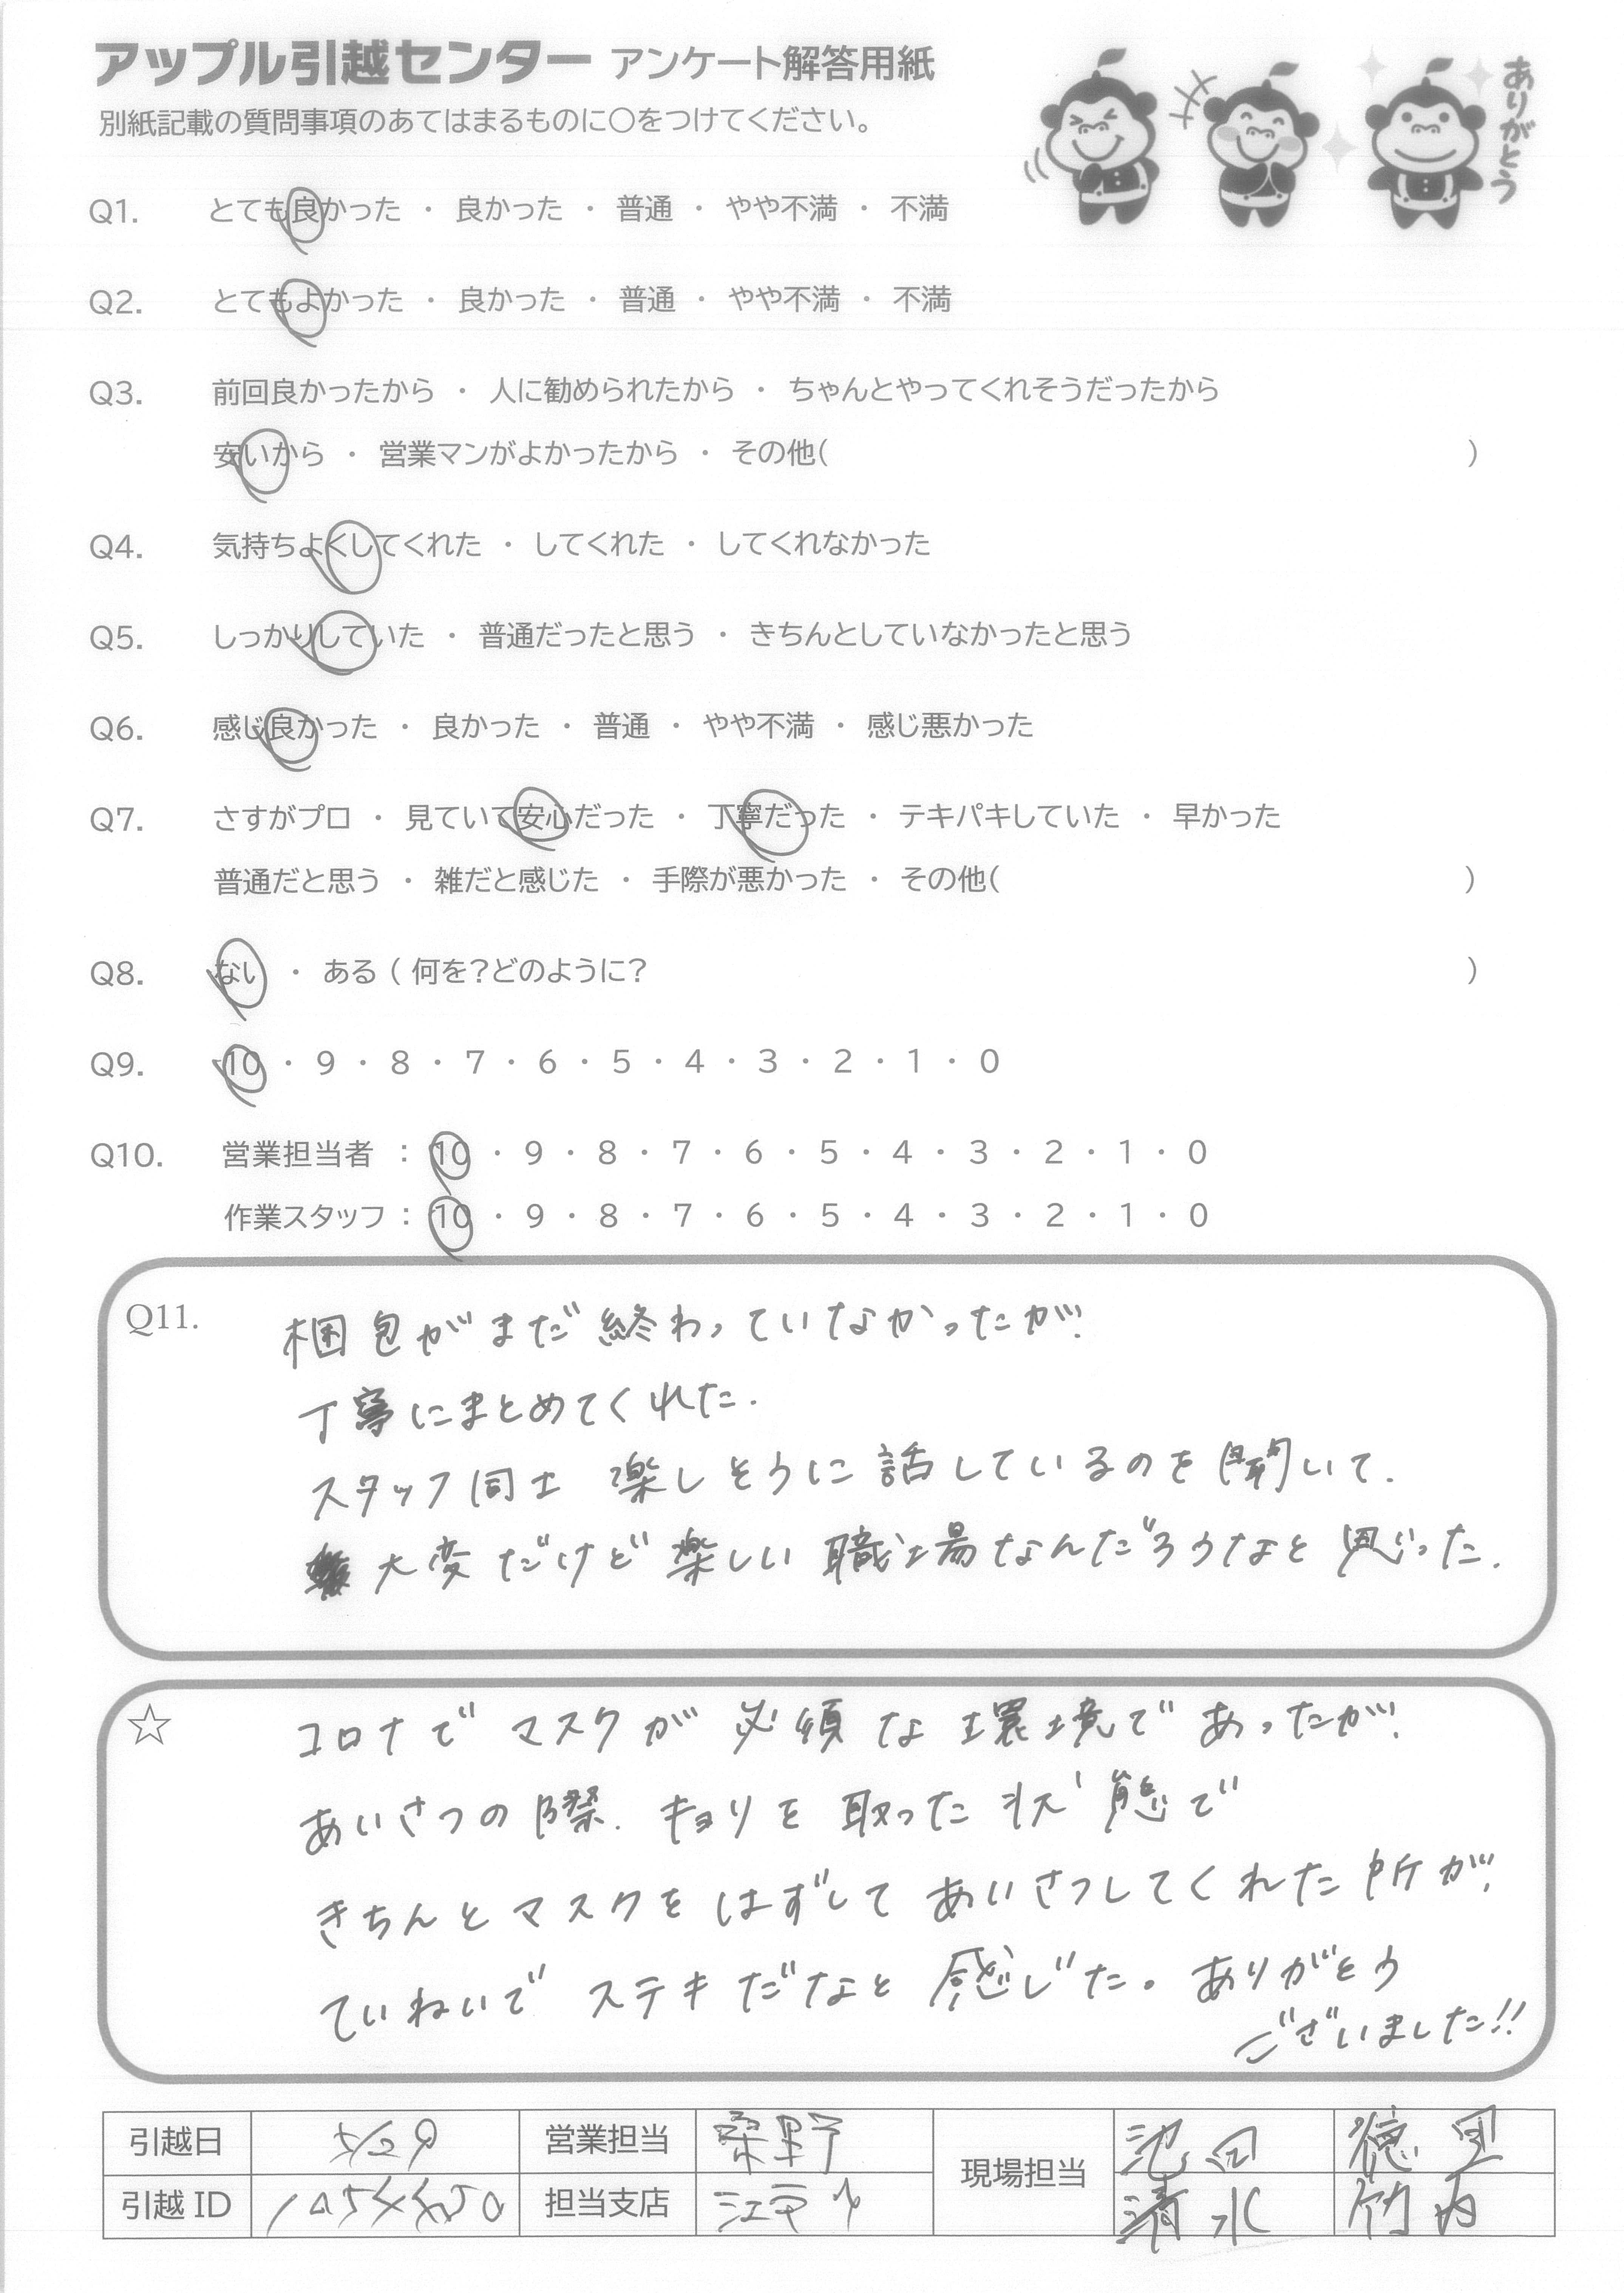 アップル引越センター アンケート解答用紙
別紙記載の質問事項のあてはまるものに〇をつけてください。
ありがとう
Q1. とても良かった ・ 良かった ・ 普通 ・ やや不満 ・ 不満
Q2. とてもよかった ・ 良かった ・ 普通 ・ やや不満 ・ 不満
Q3. 前回良かったから ・ 人に勧められたから ・ ちゃんとやってくれそうだったから
安いから ・ 営業マンがよかったから ・ その他( )
Q4. 気持ちよくしてくれた ・ してくれた ・ してくれなかった
Q5. しっかりしていた ・ 普通だったと思う ・ きちんとしていなかったと思う
Q6. 感じ良かった ・ 良かった ・ 普通 ・ やや不満 ・ 感じ悪かった
Q7. さすがプロ ・ 見ていて安心だった ・ 丁寧だった ・ テキパキしていた ・ 早かった
普通だと思う ・ 雑だと感じた ・ 手際が悪かった ・ その他( )
Q8. ない ・ ある ( 何を?どのように? )
Q9. 10 ・ 9 ・ 8 ・ 7 ・ 6 ・ 5 ・ 4 ・ 3 ・ 2 ・ 1 ・ 0
Q10. 営業担当者 : 10 ・ 9 ・ 8 ・ 7 ・ 6 ・ 5 ・ 4 ・ 3 ・ 2 ・ 1 ・ 0
作業スタッフ : 10 ・ 9 ・ 8 ・ 7 ・ 6 ・ 5 ・ 4 ・ 3 ・ 2 ・ 1 ・ 0
Q11. 梱包がまだ終わっていなかったが、
丁寧にまとめてくれた.
スタッフ同士 楽しそうに話しているのを聞いて.
大変だけど楽しい職場なんだろうなと思った.
☆ コロナでマスクが必須な環境であったが、
あいさつの際. キョリを取った状態で
きちんとマスクをはずしてあいさつしてくれた所が、
ていねいでステキだなと感じた。ありがとう
ございました!!
引越日 5/29 営業担当 桑野 現場担当 池田 徳里
引越ID 担当支店 清水 竹内